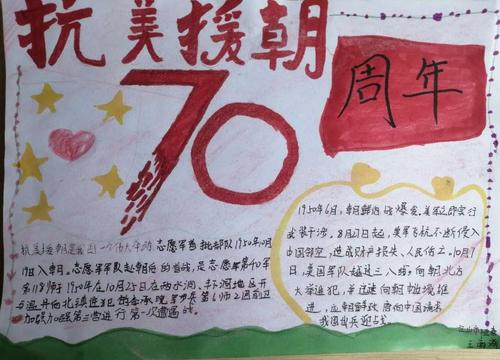 抗美援朝
70
周年
1950年6月,朝鲜内战爆发。美军立即实行
武装干涉。8月27日起,美军飞机不断侵入
中国领空,造成财产损失、人民伤亡。10月7
日,美国军队越过三八线,向朝北方
大举进犯,并迅速向朝中边境推
进,应朝鲜
我国出兵迎战。
志愿军首批部队1950年10月
19日入朝。志愿军军队赴朝后的首战,是志愿军第40军
第118师于1950年10月25日在两水洞、丰下洞地区开
向北镇进犯
加强第三营进行第一次遭遇战。